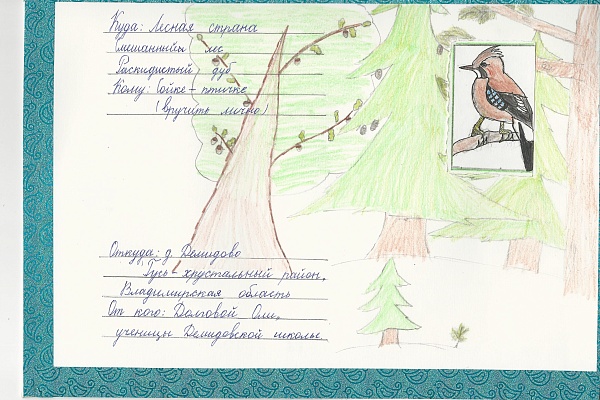 Куда: Лесная страна
Смешанный лес
Раскидистый дуб
Кому: Сойке - птичке
(вручить лично)
Откуда: д. Демидово
Гусь-хрустальный район,
Владимирская область
От кого: Долговой Оли,
ученицы Демидовской школы.